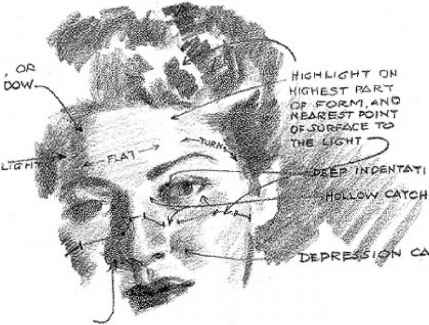 , OR
DOW
HIGHLIGHT ON
HIGHEST PART
OF FORM, AND
NEAREST POINT
OF SURFACE TO
THE LIGHT
LIGHT
FLAT
TURN
DEEP INDENTATI
HOLLOW CATCH
DEPRESSION CA